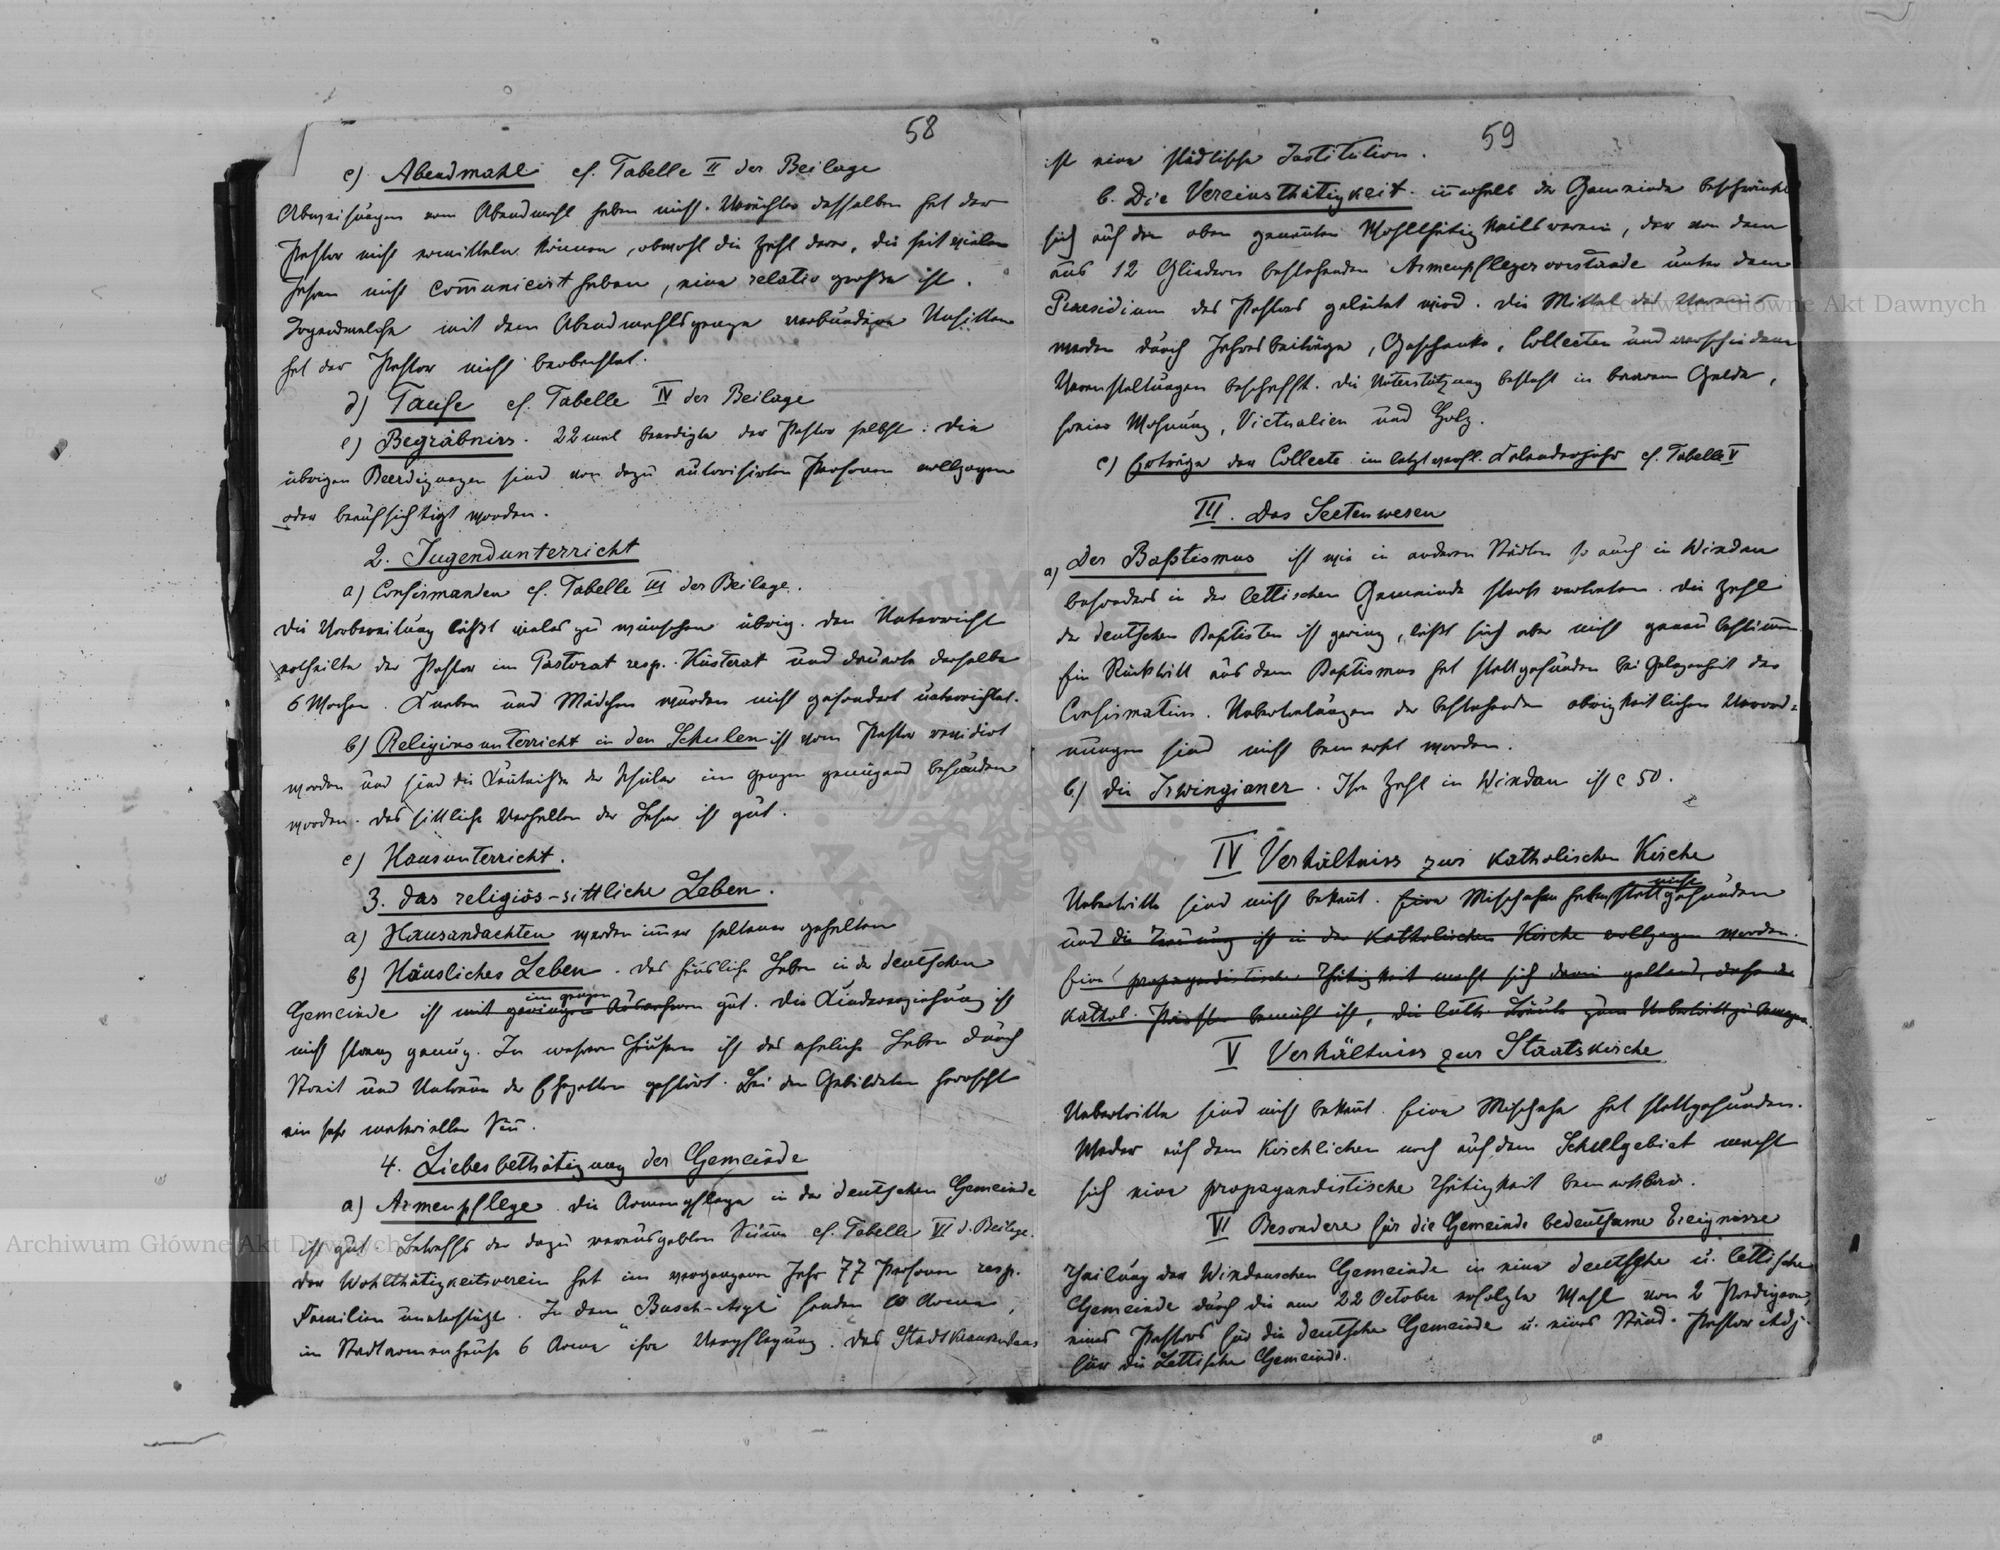 58
c) Abendmahl cf. Tabelle II der Beilage
Abweisungen vom Abendmahl haben nicht. Verächter desselben hat der
Pastor nicht ermitteln können, obwohl die Zahl derer, die seit vielen
Jahren nicht communicirt haben, eine relativ große ist.
Irgendwelche mit dem Abendmahlsgange verbundene Unsitten
hat der Pastor nicht beobachtet.
d) Taufe cf. Tabelle IV der Beilage
e) Begräbniss. 22 mal beerdigte der Pastor selbst. Die
übrigen Beerdigungen sind von dazu autorisirten Personen vollzogen
oder beaufsichtigt worden.
2. Jugendunterricht
a) Confirmanden cf. Tabelle III der Beilage.
Die Vorbereitung läßt vieles zu wünschen übrig. Den Unterricht
ertheilte der Pastor im Pastorat resp. Küsterat und dauerte derselbe
6 Wochen. Knaben und Mädchen wurden nicht gesondert unterrichtet.
b) Religionsunterricht in den Schulen ist vom Pastor revidirt
worden und sind die Kentnisse der Schüler im ganzen genügend befunden
worden. Das sittliche Verhalten der Lehrer ist gut.
c) Hausunterricht.
3. Das religiös-sittliche Leben.
a) Hausandachten werden immer seltener gehalten
b) Häusliches Leben. Das häusliche Leben in der deutschen
im ganzen
Gemeinde ist mit geringen Ausnahmen gut. Die Kindererziehung ist
nicht streng genug. In mehreren Häusern ist das eheliche Leben durch
Streit und Untreue der Ehegatten gestört. Bei den Gebildeten herrscht
ein sehr materieller Sinn.
4. Liebesbethätigung der Gemeinde
a) Armenpflege. Die Armenpflege in der deutschen Gemeinde
ist gut. Betreffs der dazu verausgabten Summe cf. Tabelle VI d. Beilage.
Der Wohlthätigkeitsverein hat im vergangenen Jahr 77 Personen resp.
Familien unterstützt. In dem Busch-Asyl fanden 10 Arme,
im Stadtarmenhause 6 Arme ihre Verpflegung. Das Stadtkrankenhaus
59
ist eine städtische Institution.
b. Die Vereinsthätigkeit innerhalb der Gemeinde beschränkt
sich auf den oben genannten Wohlthätigkeitsverein, der von dem
aus 12 Gliedern bestehenden Armenpflegervorstande unter dem
Praesidium des Pastors geleitet wird. Die Mittel des Vereins
werden durch Jahresbeiträge, Geschenke, Collecten und verschiedene
Veranstaltungen beschafft. Die Unterstützung besteht in baarem Gelde,
freier Wohnung, Victualien und Holz.
c) Erträge der Collecte im letztverfl. Kalenderjahr cf. Tabelle V
III. Das Sectenwesen
a) Der Baptismus ist wie in anderen Städten so auch in Windau
besonders in der lettischen Gemeinde stark vertreten. Die Zahl
der deutschen Baptisten ist gering, läßt sich aber nicht genau bestimmen
Ein Rücktritt aus dem Baptismus hat stattgefunden bei Gelegenheit der
Confirmation. Uebertretungen der bestehenden obrigkeitlichen Verord=
nungen sind nicht bemerkt worden.
b) Die Irwingianer. Ihre Zahl in Windau ist c 50.
IV Verhältniss zur katholischen Kirche
nicht
Uebertritte sind nicht bekannt. Eine Mischehen haben stattgefunden
und die Trauung ist in der katholischen Kirche vollzogen worden.
Eine propagandistische Thätigkeit macht sich darin geltend, dass der
kathol. Priester bemüht ist, die luth. Bräute zum Uebertritt zu bewegen.
V Verhältniss zur Staatskirche
Uebertritte sind nicht bekannt. Eine Mischehe hat stattgefunden.
Weder auf dem kirchlichen noch auf dem Schulgebiet macht
sich eine propagandistische Thätigkeit bemerkbar.
VI Besondere für die Gemeinde bedeutsame Ereignisse
Theilung der Windauschen Gemeinde in eine deutsche u. lettische
Gemeinde durch die am 22 October erfolgte Wahl von 2 Predigern,
eines Pastors für die deutsche Gemeinde u. eines Ständ. Pastor Adj.
für die Lettische Gemeinde.
Archiwum Główne Akt Dawnych
Archiwum Główne Akt Dawnych